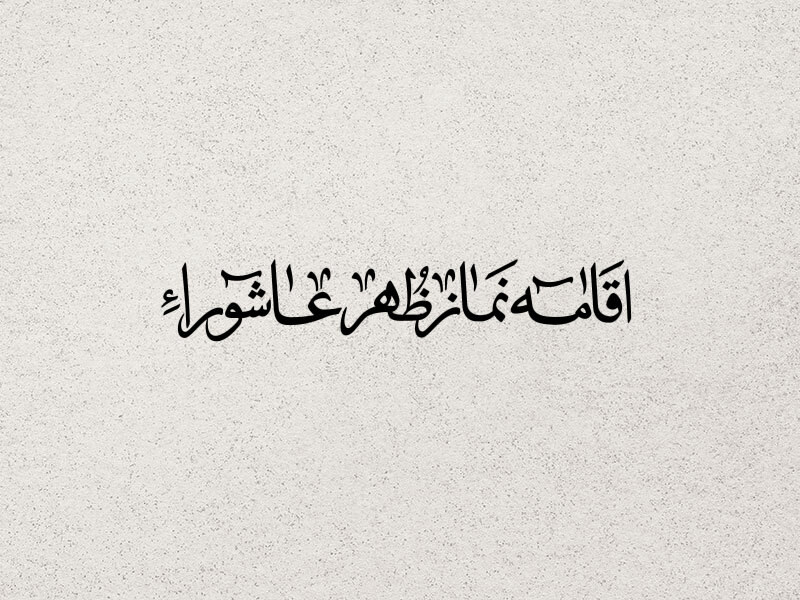 اقامه نماز ظهر عاشوراء